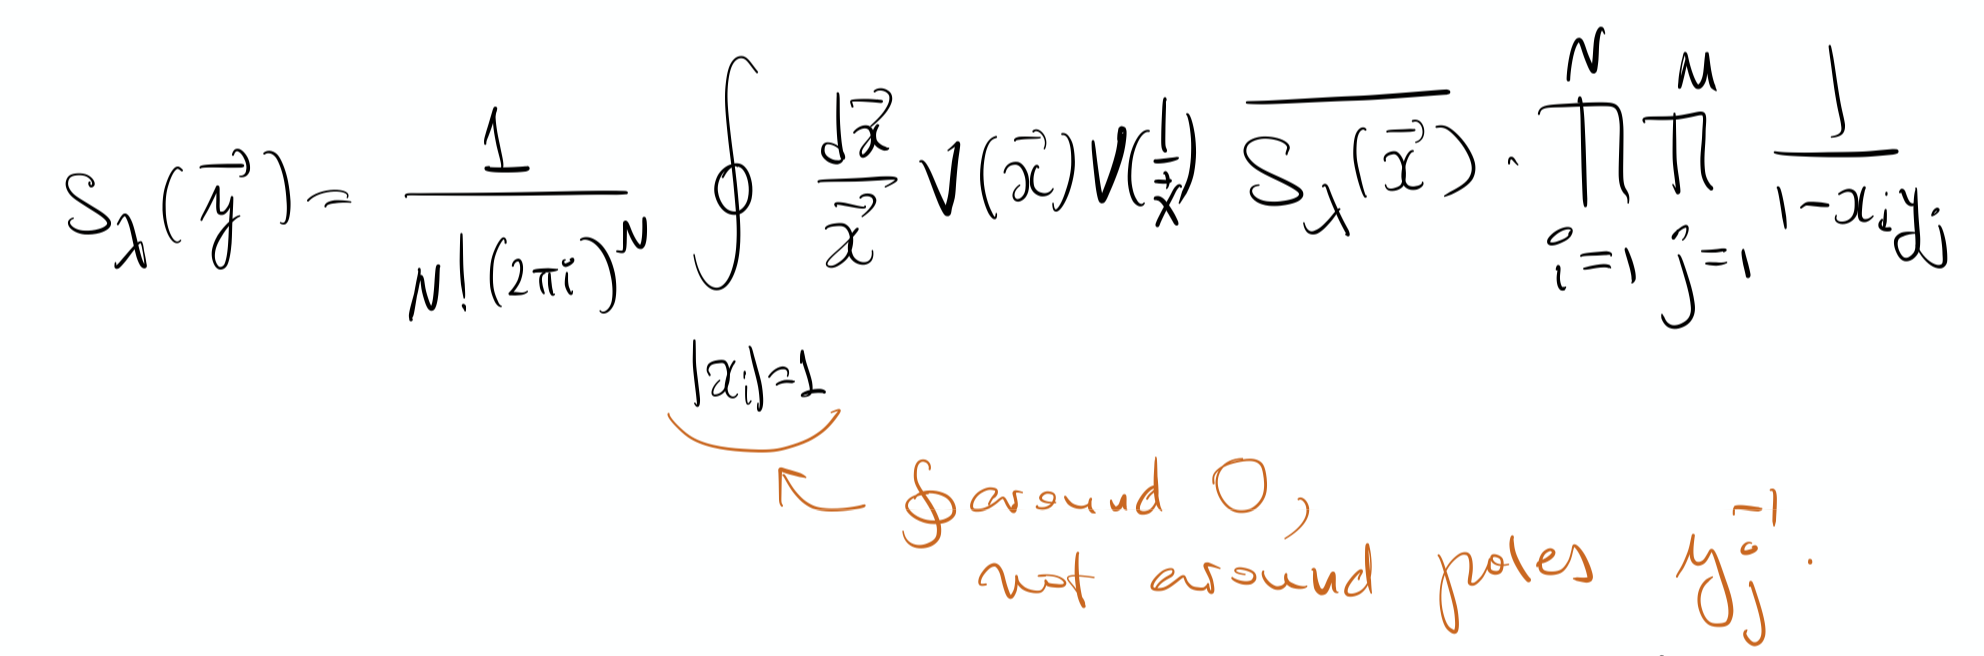 $S_\lambda(\vec{y}) = \frac{1}{N!(2\pi i)^N} \oint_{|x_i|=1} \frac{d\vec{x}}{\vec{x}} V(\vec{x}) V(\frac{1}{\vec{x}}) \overline{S_\lambda(\vec{x})} \cdot \prod_{i=1}^{N} \prod_{j=1}^{M} \frac{1}{1-x_i y_j}$
$\oint$ around 0,
not around poles $y_j^{-1}$.